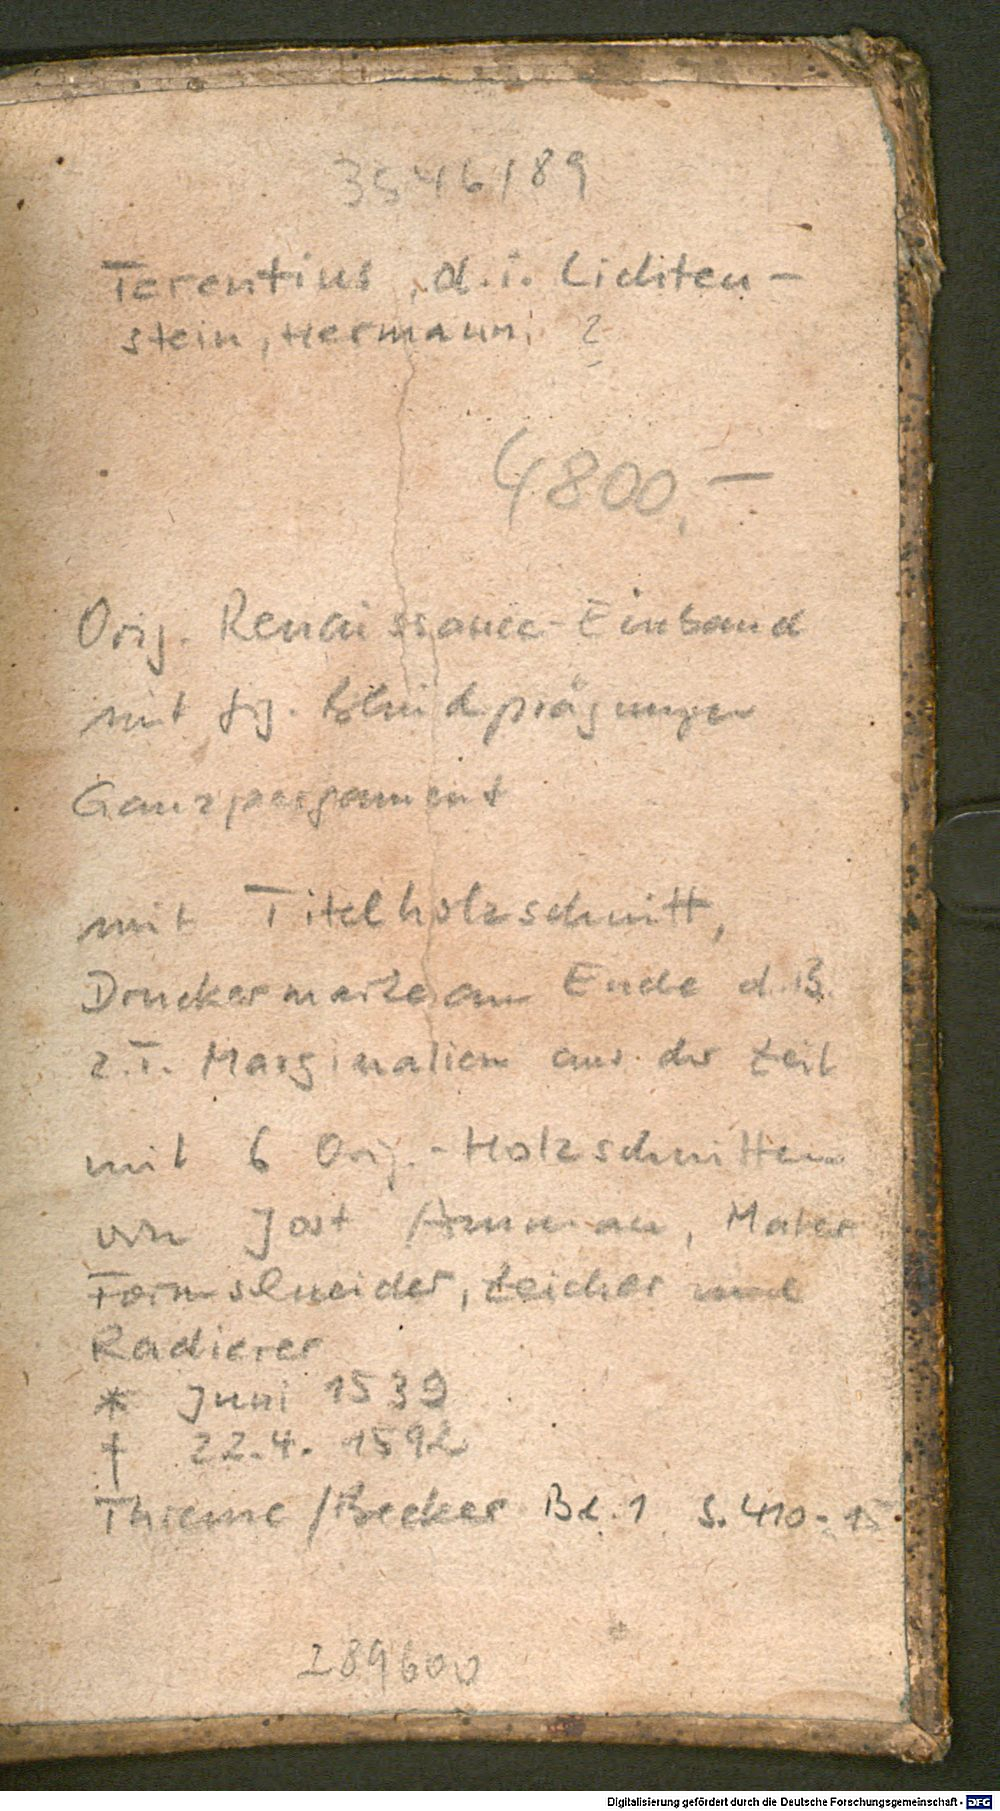 3546/89
Terentius, d.i. Lichten-
stein, Hermann; ?
4800,-
Orig. Renaissance-Einband
mit fig. Blindprägungen
Ganzpergament
mit Titelholzschnitt,
Druckermarke am Ende d.B.
z.T. Marginalien aus der Zeit
mit 6 Orig.-Holzschnitten
von Jost Amman, Maler
Formschneider, Zeicher und
Radierer
* Juni 1539
† 22.4. 1592
Thieme/Becker Bd. 1 S. 410-15
289600
Digitalisierung gefördert durch die Deutsche Forschungsgemeinschaft - DFG